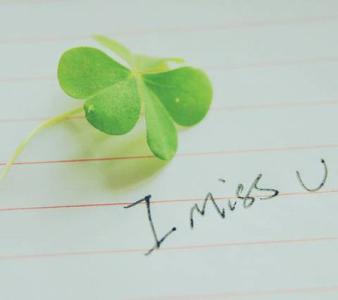 I Miss U